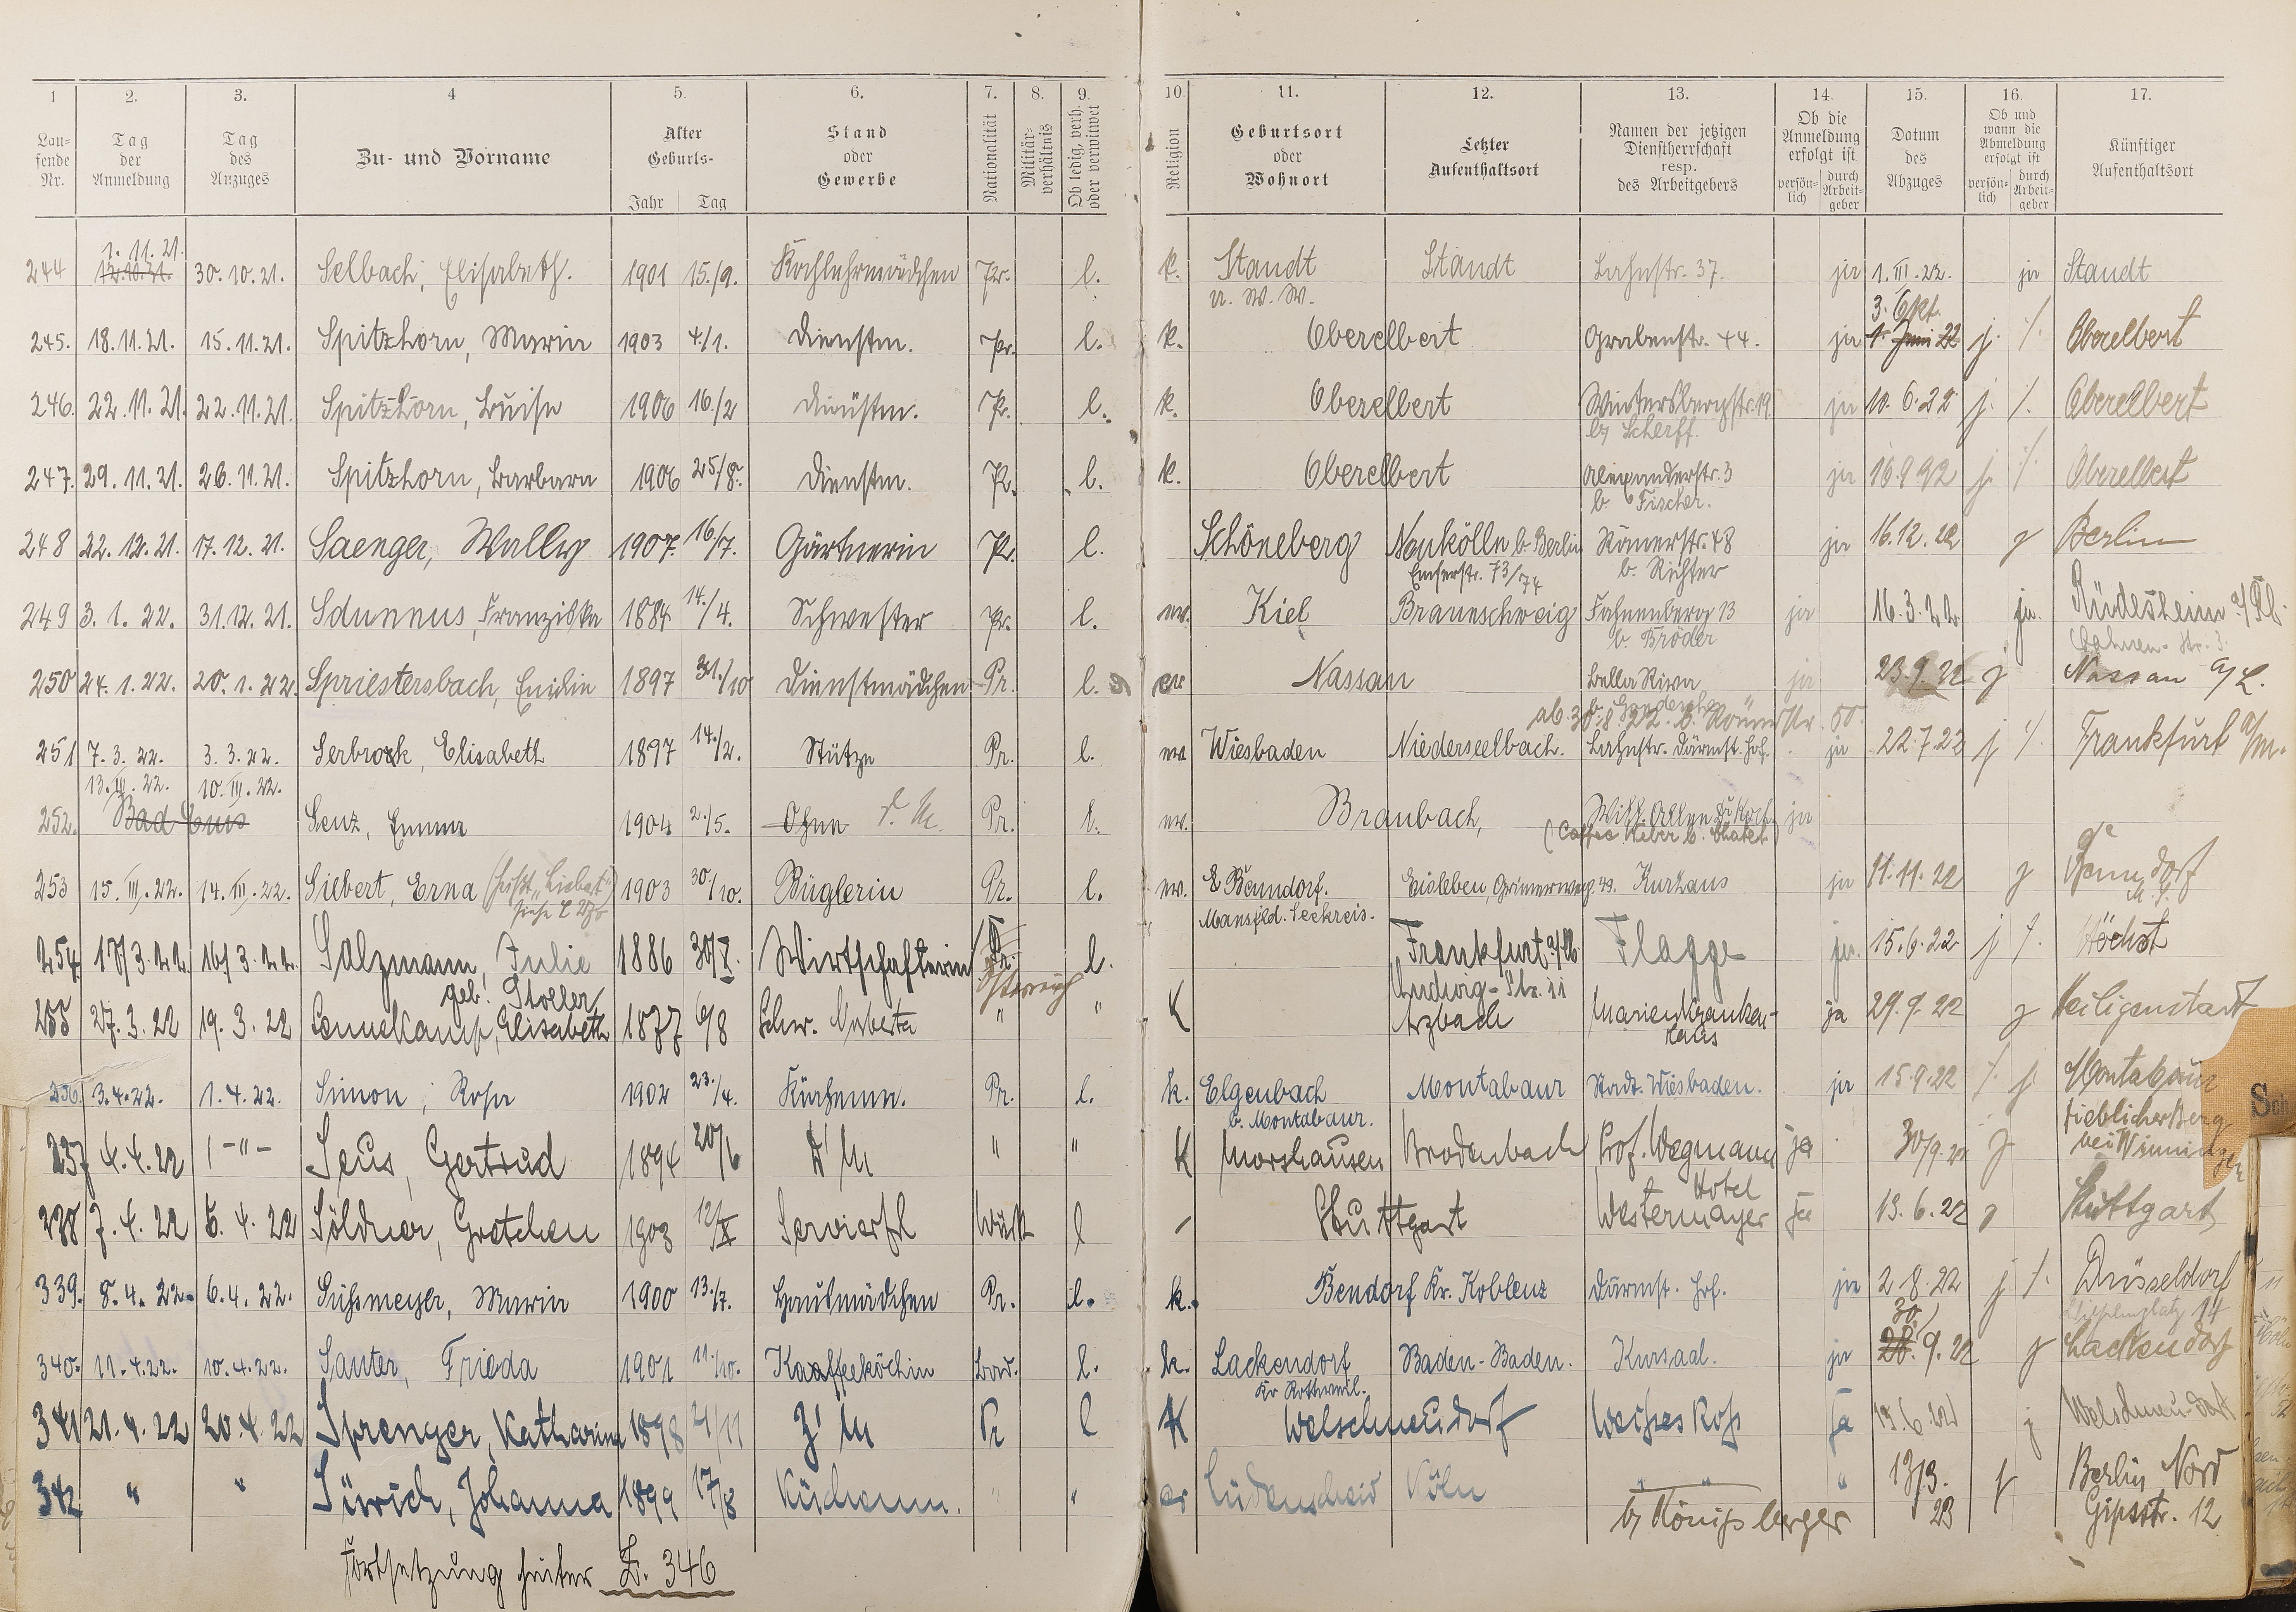 1 2. 3. 4 5. 6. 7. 8. 9. 10. 11. 12. 13. 14. 15. 16. 17.
Lau-
fende
Nr.
Tag
der
Anmeldung
Tag
des
Anzuges
Zu- und Vorname
Alter
Geburts-
Jahr Tag
Stand
oder
Gewerbe
Nationalität
Militär-
verhältnis
Ob ledig, verh.
oder verwitwet
Religion
Geburtsort
oder
Wohnort
Letzter
Aufenthaltsort
Namen der jetzigen
Dienstherrschaft
resp.
des Arbeitgebers
Ob die
Anmeldung
erfolgt ist
persön-
lich
durch
Arbeit-
geber
Datum
des
Abzuges
Ob und
wann die
Abmeldung
erfolgt ist
persön-
lich
durch
Arbeit-
geber
Künftiger
Aufenthaltsort
1. 11. 21.
244 12.10.21. 30.10.21. Selbach, Elisabeth. 1901 15./9. Kochlehrmädchen Pr. l. k. Standt Standt Lahnstr. 37. ja 1. III. 22. ja Standt
u. W. W.
3. Okt.
245. 18.11.21. 15.11.21. Spitzhorn, Maria 1903 4/1. Dienstm. Pr. l. k. Oberelbert Grabenstr. 44. ja 1. Juni 22 j. /. Oberelbert
246. 22.11.21. 22.11.21. Spitzhorn, Luise 1906 16./2 Dienstm. Pr. l. k. Oberelbert Wintersbergstr. 19 ja 10. 6. 22 j. /. Oberelbert
b/ Scherff.
247. 29.11.21. 26.11.21. Spitzhorn, Barbara 1906 25/8. Dienstm. Pr. l. k. Oberelbert Alexanderstr. 3 ja 16.9.22 j. /. Oberelbert
b. Fischer.
248 22.12.21. 17.12.21. Saenger, Wally 1907. 16/7. Gärtnerin Pr. l. Schöneberg Neukölln b. Berlin Römerstr. 48 ja 16.12.22 j Berlin
Emserstr. 73/74 b. Richter
249 3. 1. 22. 31.12.21. Sdunnus, Franziska 1884 14./4. Schwester Pr. l. ev. Kiel Braunschweig Fahnenberg 13 ja 16.3.22. ja. Rüdesheim a/Rh.
b. Bröder
250 24. 1. 22. 20. 1. 22. Spriestersbach, Emilie 1897 31./10 Dienstmädchen Pr. l. ev Nassau Bella Riva ja 23.9.22 j Nassau a/L.
ab. 30.8.22. b. Römerstr. 50.
251 7. 3. 22. 3. 3. 22. Serbrock, Elisabeth 1897 14./2. Stütze Pr. l. ev. Wiesbaden Niederseelbach. Lahnstr. Darmst. Hof. ja 22.7.22 j /. Frankfurt a/M.
13. III. 22. 10. III. 22.
252. Bad Ems Senz, Emma 1904 2./5. Ohne D. M. Pr. l. ev. Braubach, ja
253 15. III. 22. 14. III. 22. Siebert, Erna 1903 30/10. Büglerin Pr. l. ev. Eisleben, Kurhaus ja 11.11.22 j
Mansfeld. Seekreis.
254 17/3.22. 16/3.22. Salzmann, Julie 1886 30/X. Wirtschafterin Pr. l. Frankfurt a/M. Flagge ja. 15.6.22 j /. Höchst
geb. Stoller Österreich
255 27.3.22 19.3.22 Sennekamp, Elisabeth 1877 6/8 Schw. Norberta " " K Arzbach Marienkranken- ja 29.9.22 j Heiligenstadt
haus
256. 3.4.22. 1.4.22. Simon, Rosa 1902 23./4. Küchenm. Pr. l. k. Elgenbach Montabaur Stadt Wiesbaden. ja 15.9.22 /. j. Montabaur
b. Montabaur.
257 4.4.22 1 - " - Seus, Gertrud 1894 20/6 D' M " " K Morshausen Brodenbach Prof. Wegmann ja 30/9.22 j
238 7.4.22 5.4.22 Söldner, Gretchen 1903 12/X Servierfl Württ l / Stuttgart Hotel Westermayer ja 13.6.22 j Stuttgart
339. 8.4.22. 6.4.22. Süssmeyer, Maria 1900 13./7. Hausmädchen Pr. l. k. Bendorf Kr. Koblenz Darmst. Hof. ja 2.8.22 j /. Düsseldorf
30.
340. 11.4.22. 10.4.22. Sauter, Frieda 1901 11./10. Kaffeeköchin Bad. l. k. Lackendorf Baden-Baden. Kursaal. ja 28.9.22 j Lackendorf
Kr. Rottweil.
341 21.4.22 20.4.22 Sprenger, Katharina 1898 21/11 Z' M Pr l K Welschneudorf Weisses Ross ja 13.6.22 j Welschneudorf
342 " " Sürich, Johanna 1899 17/8 Küchenm. " " ev Lüdenscheid Köln " " 13/3. 23 j Berlin Nord
b/ Königsberger Gipsstr. 12
Fortsetzung hinter L. 346
Sch